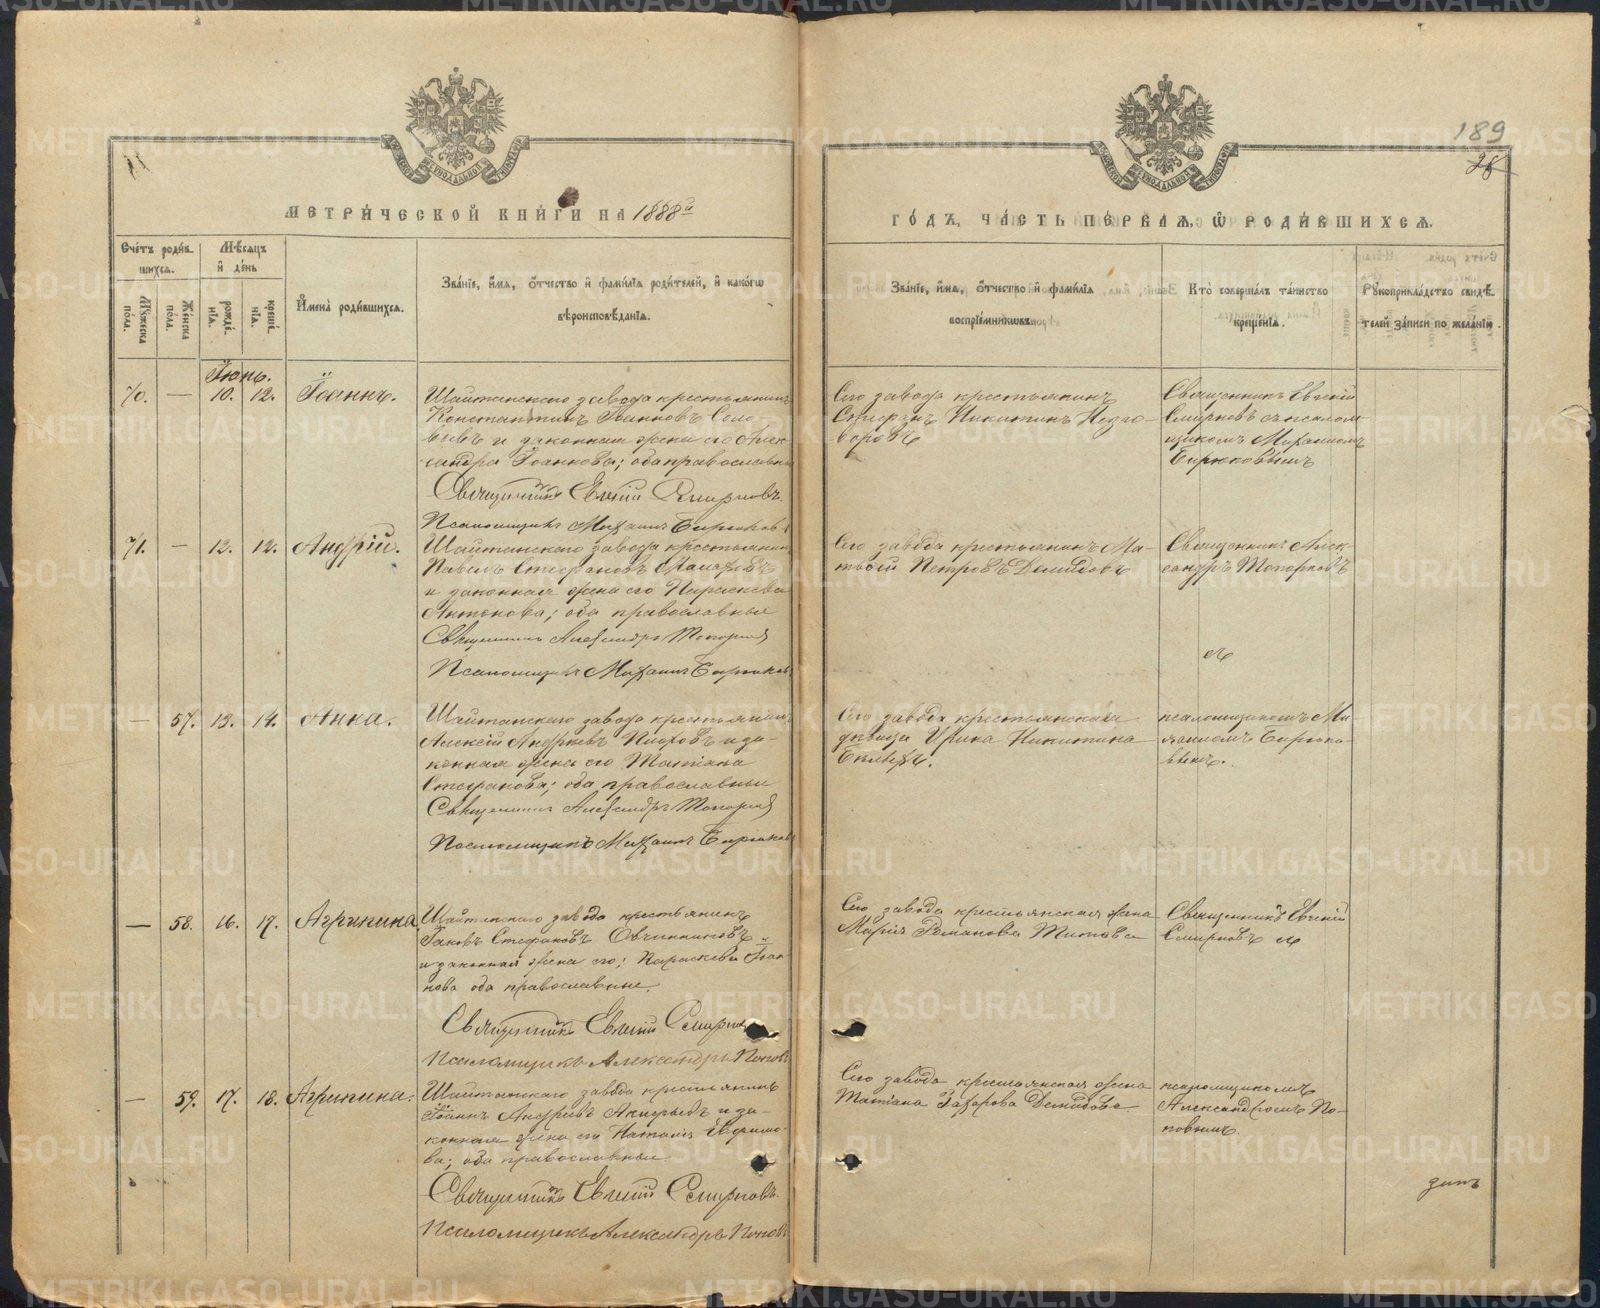 189
28
МЕТРИЧЕСКОЙ КНИГИ НА 1888й
ГОДЪ, ЧАСТЬ ПЕРВАЯ, Ѡ РОДИВШИХСЯ.
Счетъ родившихся.
Мѣсяцъ и день
Мужеска пола.
Женска пола.
рожденія.
крещенія.
Имена родившихся.
Званіе, имя, отчество и фамилія родителей, и какогѡ
вѣроисповѣданія.
Званіе, имя, отчество и фамилія
воспріемниковъ.
Кто совершалъ таинство
крещенія.
Рукоприкладство свидѣтелей записи по желанію.
Іюнь.
70. — 10. 12. Іоаннъ.
Шайтанскаго завода крестьянинъ
Константинъ Іоанновъ Соло
вьевъ и законная жена его Алек
сандра Іоаннова; оба православные
Священникъ Евгеній Смирновъ.
Псаломщикъ Михаилъ Бирюковъ
Сего завода крестьянинъ
Стефанъ Никитинъ Незго-
воровъ
Священникъ Евгеній
Смирновъ съ псалом
щикомъ Михаиломъ
Бирюковымъ
71. — 12. 12. Андрей.
Шайтанскаго завода крестьянинъ
Павелъ Стефановъ
и законная жена его Параскева
Антонова; оба православные
Священникъ Александръ Топорковъ
Псаломщикъ Михаилъ Бирюковъ
Сего завода крестьянинъ Ма-
твѣй Петровъ Демидовъ
Священникъ Алек-
сандръ Топорковъ
съ
— 57. 13. 14. Анна.
Шайтанскаго завода крестьянинъ
Алексій Андреевъ и за-
конная жена его Татіана
Стефанова; оба православные
Священникъ Александръ Топорковъ
Псаломщикъ Михаилъ Бирюковъ
Сего завода крестьянская
дѣвица Ирина Никитина
псаломщикомъ Ми-
хаиломъ Бирюко-
вымъ.
— 58. 16. 17. Агрипина
Шайтанскаго завода крестьянинъ
Іаковъ Стефановъ Овчинниковъ
и законная жена его; Параскева Іоан-
нова оба православные.
Священникъ Евгеній Смирновъ
Псаломщикъ Александръ Поповъ
Сего завода крестьянская жена
Марія Романова Титова
Священникъ Евгеній
Смирновъ съ
— 59. 17. 18. Агрипина.
Шайтанскаго завода крестьянинъ
Іоаннъ Андреевъ и за-
конная жена его Наталія Евфимо-
ва; оба православные.
Священникъ Евгеній Смирновъ.
Псаломщикъ Александръ Поповъ
Сего завода крестьянская жена
Татіана Захарова Демидова
псаломщикомъ
Александромъ По-
повымъ.
METRIKI.GASO-URAL.RU